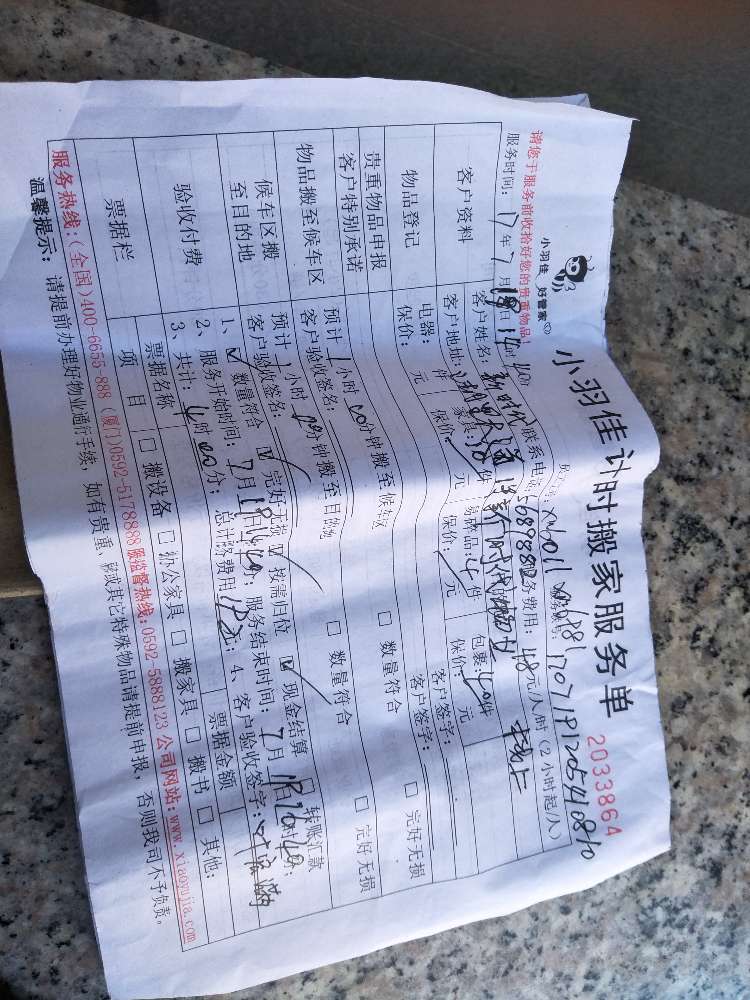 小羽佳 好管家
小羽佳计时搬家服务单
2033864
请您于服务前收拾好您的贵重物品!
服务时间: 17年7月18日14时40分
客户资料
客户姓名: 新时代 联系电话: 5689880 服务费用: 48元/人/时(2小时起/人)
客户地址:
物品登记
电器: 件 家具: 10件 易碎品: 4件 包裹: 40件
保价: 元 保价: 元 保价: 元 保价: 元
贵重物品申报
客户签字:
客户特别承诺
客户签字:
物品搬至候车区
预计1小时00分钟搬至候车区 □ 数量符合 □ 完好无损
客户验收签名:
候车区搬至目的地
预计1小时 分钟搬至目的地 □ 数量符合 □ 完好无损
客户验收签名:
验收付费
1、☑ 数量符合 ☑ 完好无损 ☑ 按需归位 ☑ 现金结算 □ 转账汇款
2、服务开始时间: 7月18日 服务结束时间: 7月18日
3、共计: 4时00分; 总计服务费用: 元; 4、客户验收签字:
票据栏
票据名称 票据金额
项目 □ 搬设备 □ 办公家具 □ 搬家具 □ 搬书 □ 其他:
服务热线:(全国)400-6655-888 (厦门)0592-5178888 服监督热线:0592-5888123 公司网站:www.xiaoyujia.com
温馨提示: 请提前办理好物业通行手续, 如有贵重、 或其它特殊物品请提前申报, 否则我司不予负责。